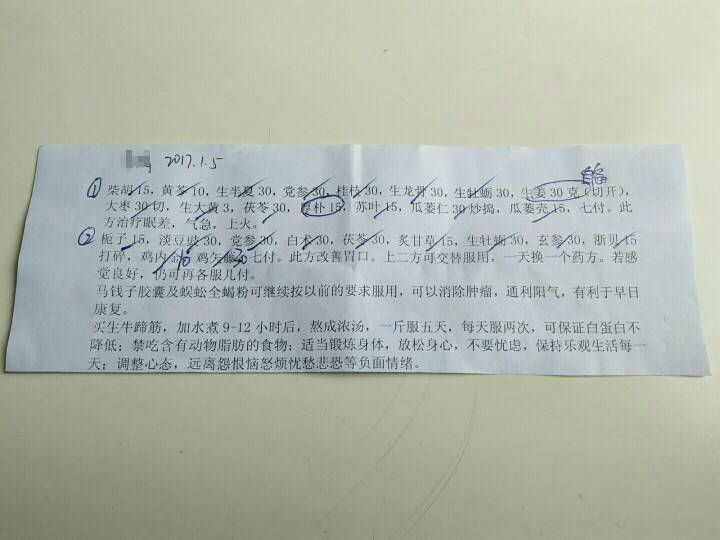 2017.1.5
自备
① 柴胡 15, 黄芩 10, 生半夏 30, 党参 30, 桂枝 30, 生龙骨 30, 生牡蛎 30, 生姜 30 克(切开),
大枣 30 切, 生大黄 3, 茯苓 30, 厚朴 15, 苏叶 15, 瓜蒌仁 30 炒捣, 瓜蒌壳 15, 七付。此
方治疗眠差, 气急, 上火。
② 栀子 15, 淡豆豉 30, 党参 30, 白术 30, 茯苓 30, 炙甘草 15, 生牡蛎 30, 玄参 30, 浙贝 15
打碎, 鸡内金 鸡矢藤 30 七付。此方改善胃口。上二方可交替服用, 一天换一个药方。若感
觉良好, 仍可再各服几付。
马钱子胶囊及蜈蚣全蝎粉可继续按以前的要求服用, 可以消除肿瘤, 通利阳气, 有利于早日
康复。
买生牛蹄筋, 加水煮 9-12 小时后, 熬成浓汤, 一斤服五天, 每天服两次, 可保证白蛋白不
降低; 禁吃含有动物脂肪的食物; 适当锻炼身体, 放松身心, 不要忧虑, 保持乐观生活每一
天; 调整心态, 远离怨恨恼怒烦忧愁悲恐等负面情绪。